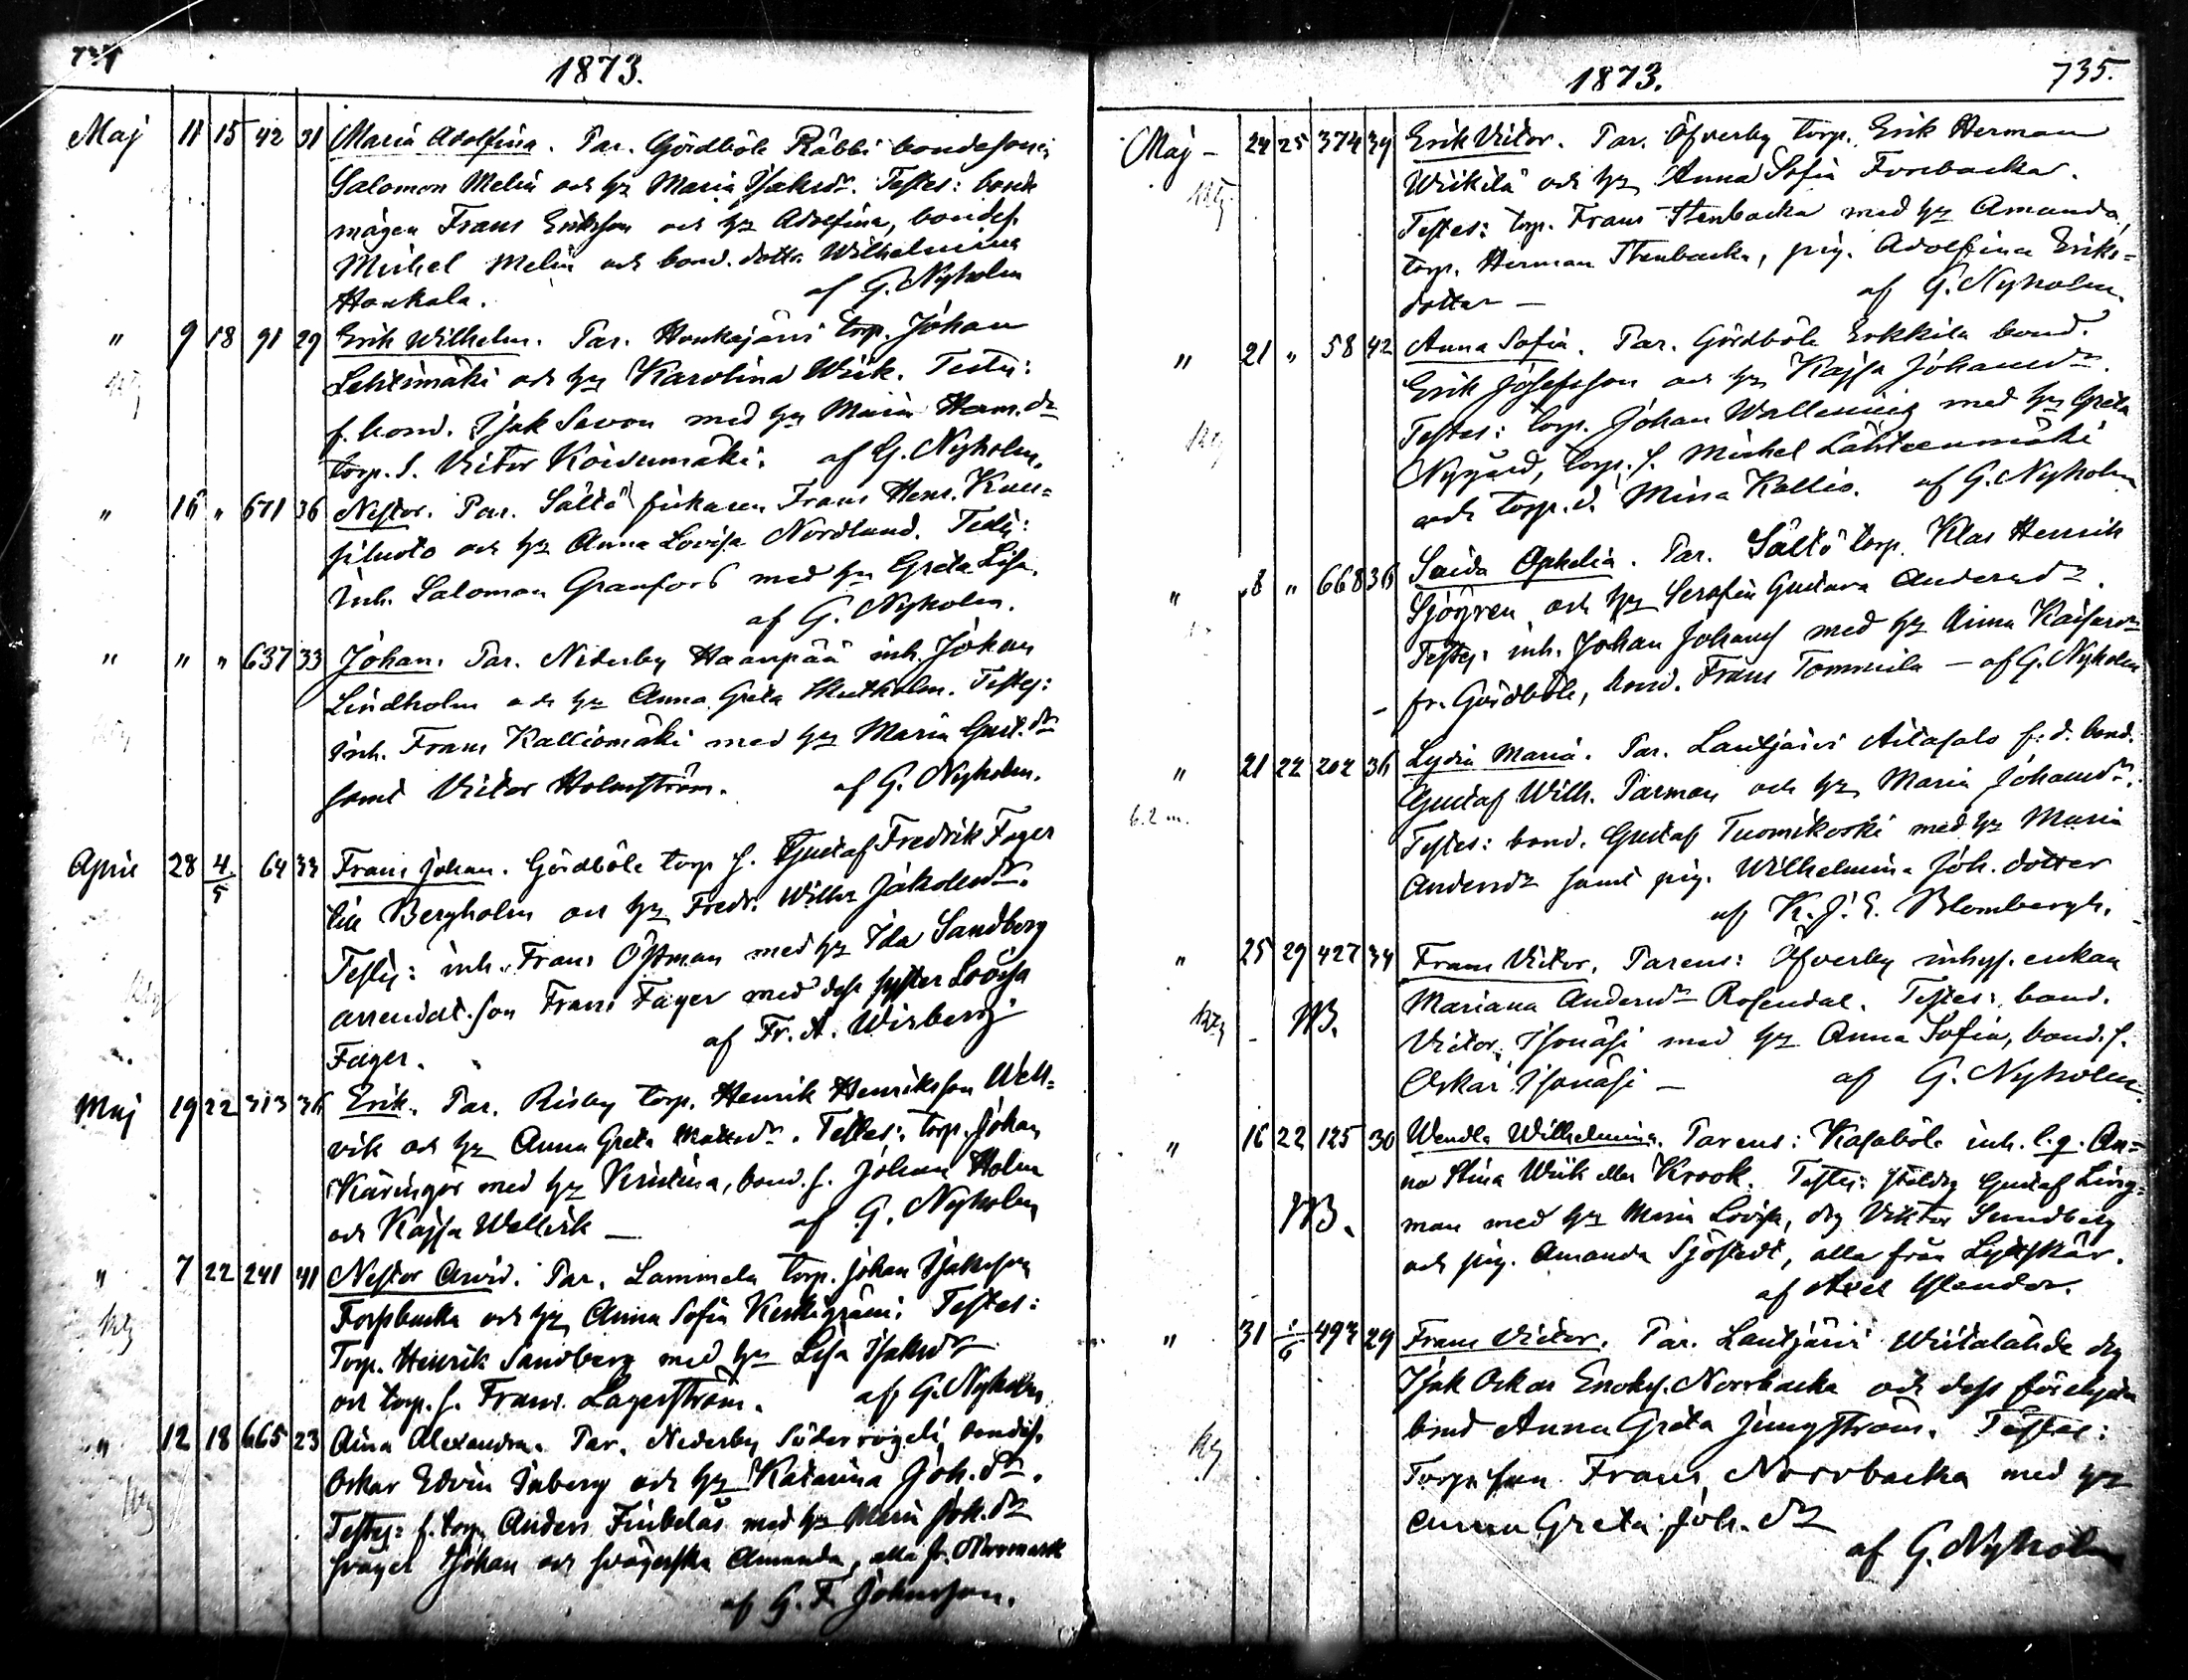 734
1873.
Maj 11 15 42 31 Maria Adolfina. Par. Gördböle Räbbi bondeson
Salomon Melin och h. Maria Isaksdr. Testes: bonde
mågen Frans Eriksson och h. Adolfina, bondes.
Michel Melin och bond. dotter Wilhelmina
Honkala. af G. Nyholm
" 9 18 91 29 Erik Wilhelm. Par. Honkajärvi torp. Johan
Lehtimäki och h. Karolina Wiik. Testes:
f. bond. Isak Savon med h. Maria Herm.dr
torp. s. Victor Koivumäki. af G. Nyholm.
" 16 " 671 36 Nestor. Par. Sältö fiskaren Frans Henr. Kuu=
siluoto och h. Anna Lovisa Nordlund. Testes:
inh. Salomon Granfors med h. Greta Lisa.
af G. Nyholm.
" " " 637 33 Johan. Par. Nederby Haanpää inh. Johan
Lindholm och h. Anna Greta . Testes:
inh. Frans Kalliomäki med h. Maria Gust.dr
samt Victor Holmström. af G. Nyholm.
April 28 4/5 64 33 Frans Johan. Gördböle torp. s. Gustaf Fredrik Fager
Bergholm och h. Fredr. Wilh. Jakobsdr.
Testes: inh. Frans Östman med h. Ida Sandberg
arrendat. son Frans Fager med dess syster Lovisa
Fager. af Fr. A. Wirberg
Maj 19 22 313 36 Erik. Par. Risby torp. Henrik Henriksson Well=
vik och h. Anna Greta Mattsdr. Testes: torp. Johan
Käringor med h. Kristina, bond. s. Johan Holm
och Kajsa Wellvik — af G. Nyholm
" 7 22 241 41 Nestor Arvid. Par. Lammela torp. Johan Isaksson
Forssbacka och h. Anna Sofia . Testes:
Torp. Henrik Sandberg med h. Lisa Isaksdr
och torp. s. Frans Lagerström. af G. Nyholm
" 12 18 665 23 Aina Alexandra. Par. Nederby Söderrögeli bondes.
Oskar Edvin Inberg och h. Katarina Joh. dr.
Testes: f. torp. Anders Finbeläs med h. Maria Joh.dr
svåger Johan och svägerska Amanda, alla fr. Norrmark
af G. F. Johnsson.
1873. 735.
Maj — 24 25 374 39 Erik Victor. Par. Öfverby torp. Erik Herman
Wiikilä och h. Anna Sofia Forsbacka.
Testes: torp. Frans Stenbacka med h. Amanda,
torp. Herman Stenbacka, pig. Adolfina Eriks=
dotter — af G. Nyholm.
" 21 " 58 42 Anna Sofia. Par. Gördböle Erkkila bond.
Erik Josefsson och h. Kajsa Johansdr.
Testes: torp. Johan Wallenius med h. Greta
Nygård, torp. s. Michel Lähteenmäki
och torp. d. Mina Kallio. af G. Nyholm
" 18 " 668 36 Saida Ophelia. Par. Sältö torp. Klas Henrik
Sjögren och h. Serafia Gustava Andersdr.
Testes: inh. Johan Johans med h. Anna Kaisa
fr. Gördböle, bond. Frans Tommila — af G. Nyholm
" 21 22 202 36 Lydia Maria. Par. Lautjärvi Aitasalo f. d. bond.
6.2 m. Gustaf Wilh. Parman och h. Maria Johansdr.
Testes: bond. Gustaf Tuomikoski med h. Maria
Andersdr samt pig. Wilhelmina Joh. dotter
af K. J. E. Blombergh.
" 25 29 427 34 Frans Victor. Parens: Öfverby inhys. enkan
NB. Mariana Andersdr Rosendal. Testes: bond.
Victor Isonäsi med h. Anna Sofia, bond. s.
Oskar Isonäsi — af G. Nyholm.
" 16 22 125 30 Wendla Wilhelmina. Parens: Kasaböle inh. l. q. An=
na Stina Wiik eller Krook. Testes: Gustaf Ling=
NB. man med h. Maria Lovisa, drg Viktor Sundberg
och pig. Amanda Sjöstedt, alla från .
af Axel .
" 31 1/6 493 29 Frans Victor. Par. Lautjärvi Wiitalähde drg
Isak Oskar Enoks. Norrbacka och dess förehjsta
brud Anna Greta Ljungström. Testes:
Torp. son Frans Norrbacka med h.
Anna Greta Joh. dr
af G. Nyholm